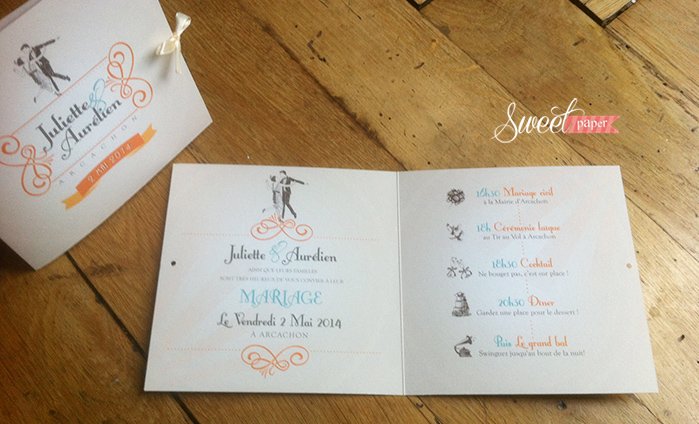 Juliette & Aurélien
ARCACHON
2 MAI 2014
Sweet paper
Juliette & Aurélien
AINSI QUE LEURS FAMILLES
SONT TRÈS HEUREUX DE VOUS CONVIER À LEUR
MARIAGE
Le Vendredi 2 Mai 2014
À ARCACHON
16h30 Mariage civil
à la Mairie d'Arcachon
18h Cérémonie laïque
au Tir au Vol à Arcachon
18h30 Cocktail
Ne bougez pas, c'est sur place !
20h30 Dîner
Gardez une place pour le dessert !
Puis Le grand bal
Swinguez jusqu'au bout de la nuit!